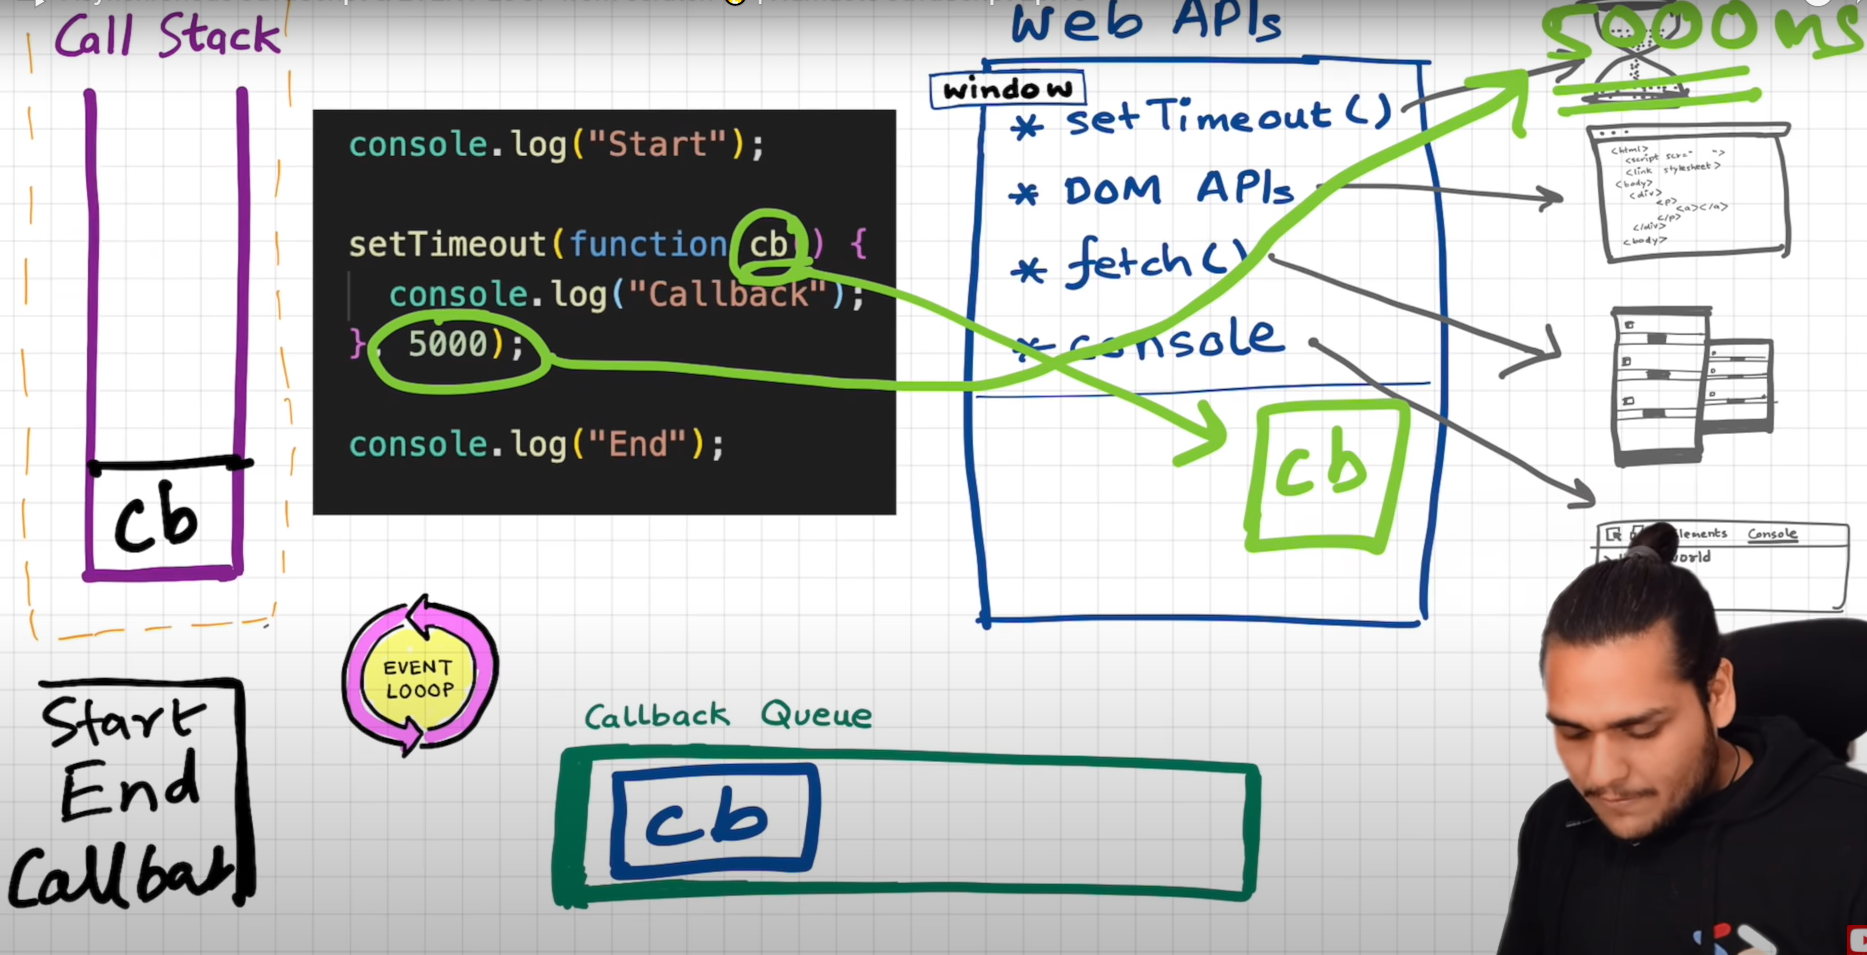 Call Stack
cb
console.log("Start");
setTimeout(function cb() {
console.log("Callback");
}, 5000);
console.log("End");
Web APIs
window
* setTimeout()
* DOM APIs
* fetch()
* console
cb
5000
<html>
<link stylesheet>
<body>
<div>
<p>
<a></a>
</p>
</div>
<body>
Elements Console
EVENT
LOOOP
Callback Queue
cb
Start
End